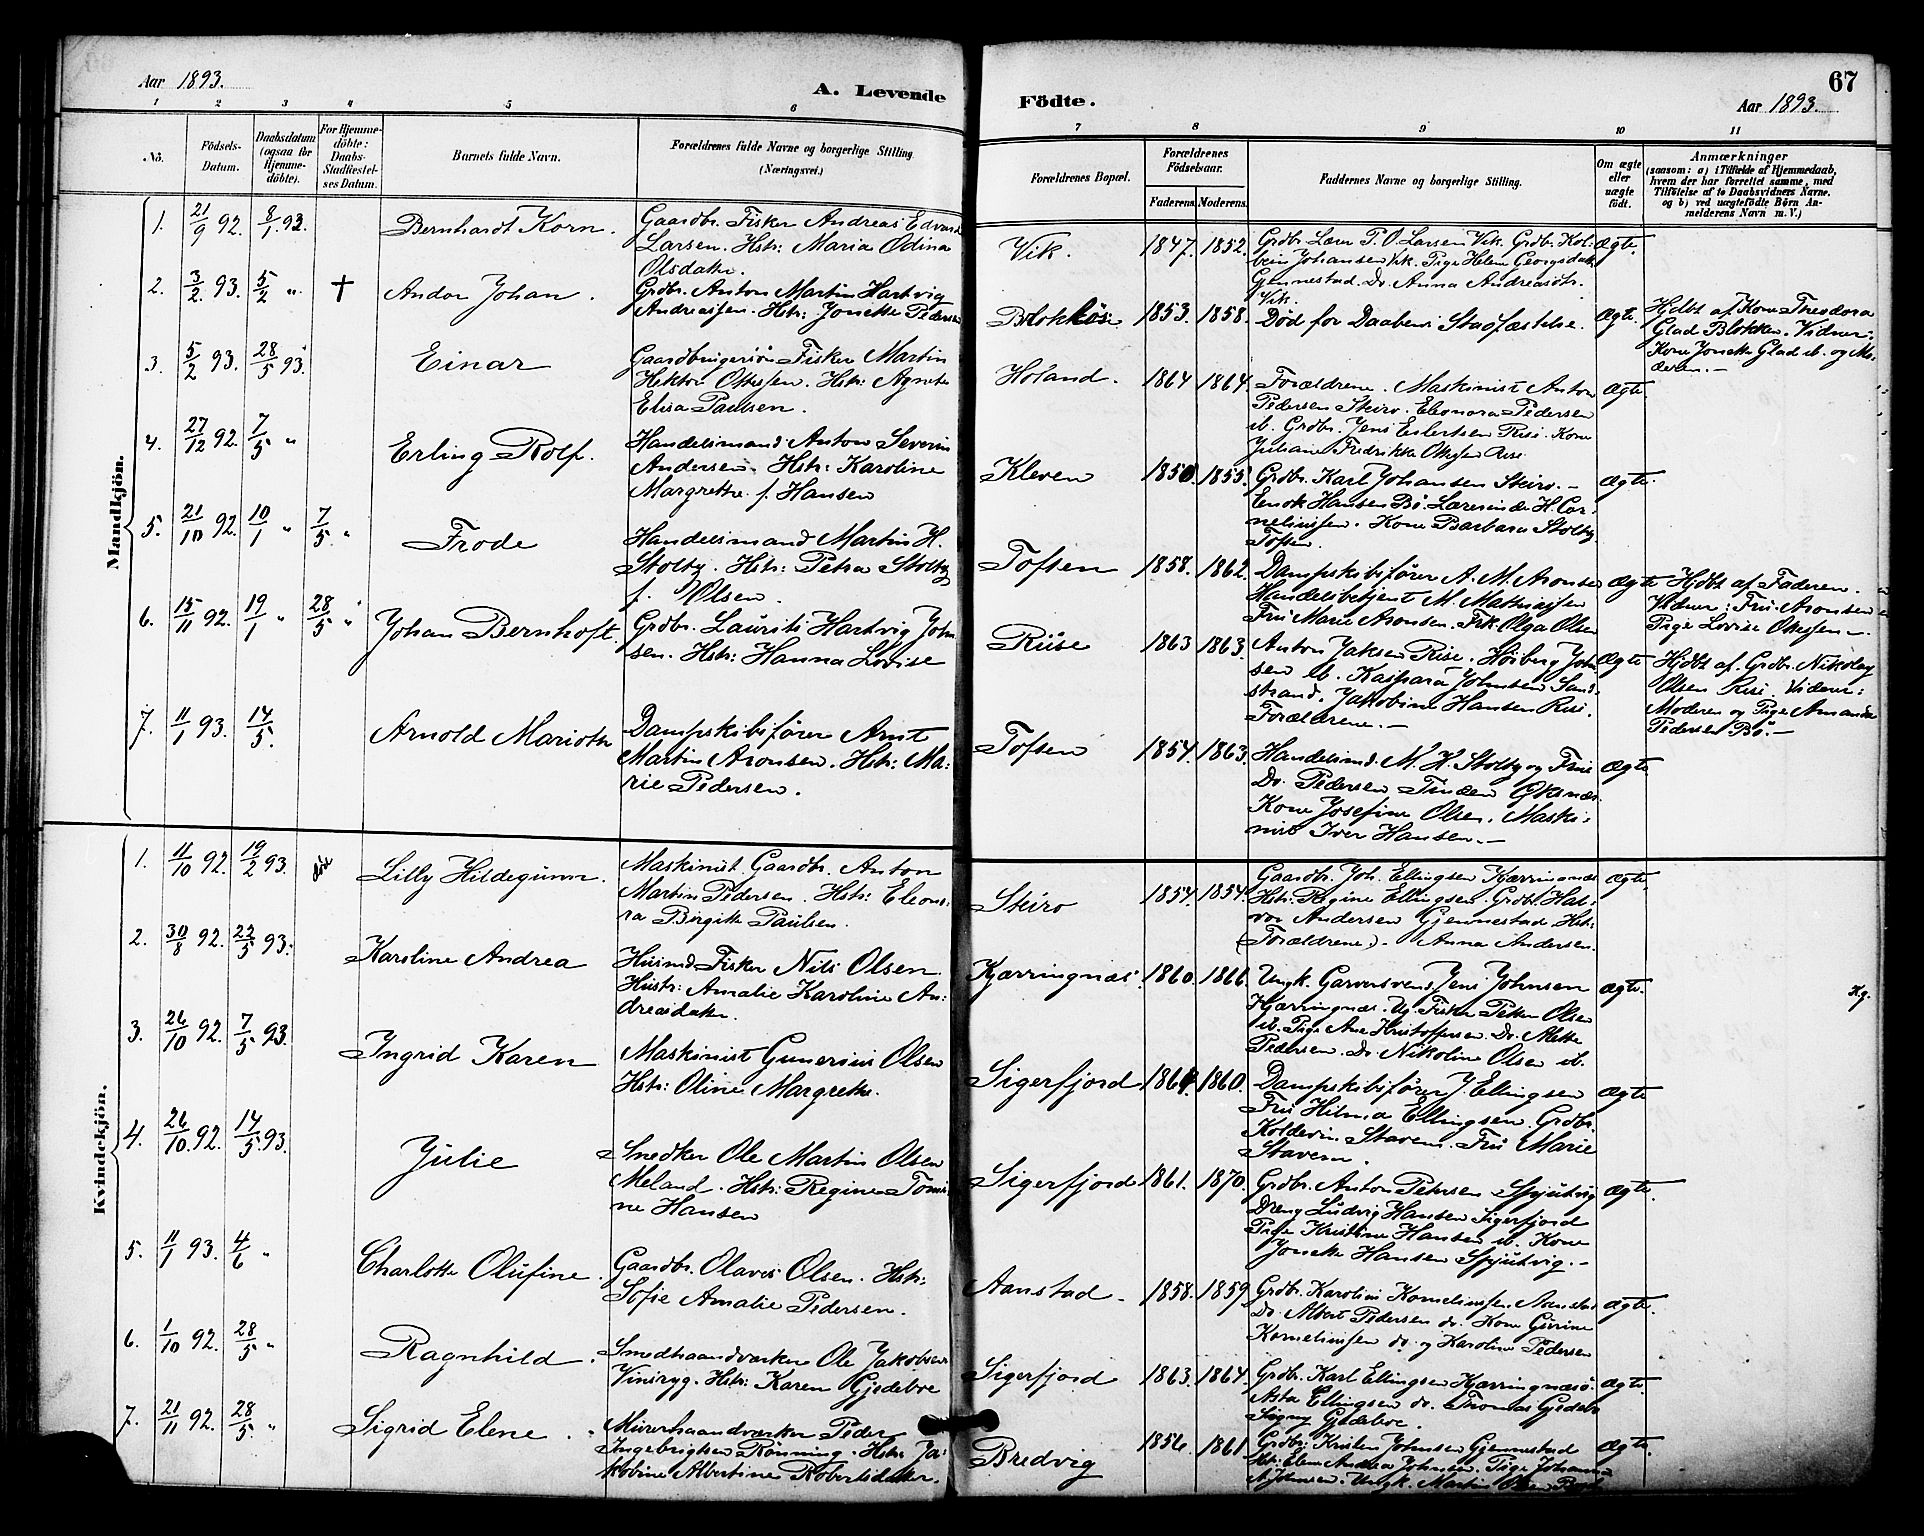 Aar 1893.
A. Levende
Födte.
67
Aar 1893.
1 2 3 4 5 6
7 8 9 10 11
No.
Födsels-
Datum.
Daabsdatum
(ogsaa for
Hjemme-
döbte).
For Hjemme-
döbte:
Daabs-
Stadfæstel-
ses Datum.
Barnets fulde Navn.
Forældrenes fulde Navne og borgerlige Stilling
(Næringsvei.)
Forældrenes Bopæl.
Forældrenes
Födselsaar.
Faderens. Moderens.
Faddernes Navne og borgerlige Stilling.
Om ægte
eller
uægte
födt.
Anmærkninger
(saasom: a) i Tilfælde af Hjemmedaab,
hvem der har forrettet samme, med
Tilföielse af to Daabsvidners Navne,
og b) ved uægtefödte Börn An-
melderens Navn m. V.)
Mandkjön.
1. 21/9 92. 8/1 93. Bernhardt Korn.
Gaardbr. Fisker Andreas Edvard
Larsen. Hstr: Maria Odina
Olsdatter.
Vik. 1847. 1852.
Grdbr. Lærer P. O. Larsen Vik. Grdbr. Kol-
bein Johansen Vik. Pige Helene Georgsdatt.
Gjennestad. Do. Anna Andreasdtr.
Vik.
Ægte.
2. 3/2. 93. 5/2 „ † Andor Johan.
Grdbr. Anton Martin Hartvig
Andreassen. Hstr: Jonette Pedersen
1853. 1858. Död för Daabens Stadfæstelse. Ægte.
Hjdbt af Kone Theodora
Glad Blokken. Vidner:
Kone Jonette Glad ib. og Mo-
deren.-
3. 5/2 93. 28/5 93. Einar
Gaardbrugersön Fisker Martin
Hektor Ottesen. Hstr: Agnete
Elisa Paulsen.
Holand. 1864 1864.
Forældrene. Maskinist Anton
Pedersen Steiro. Eleonora Pedersen
ib. Grdbr. Jens Eilertsen Risi. Kone
Juliane Fredrikke Ottesen Risi
Ægte.
4. 27/12 92. 7/5 „ Erling Rolf.
Handelsmand Anton Severin
Andersen. Hstr: Karoline
Margrethe f. Hansen
Kleven 1850. 1855.
Grdbr. Karl Johansen Steiro.-
Enok Hansen Bö. Lærerinde H. Cor-
neliussen. Kone Barbara Stoltz
Toften.
Ægte.
5. 21/10 92. 10/1 „ 7/5 „ Frode
Handelsmand Martin H.
Stoltz. Hstr: Petra Stoltz
f. Olsen.
Toften 1858. 1862.
Dampskibsförer A. M. Aronsen
Handelsbetjent M. Mathiassen
Fru Marie Aronsen. Frk. Olga Olsen
Ægte
Hjdbt af Faderen.
Vidner: Fru Aronsen
Pige Lovise Ottesen.-
6. 15/11 92. 19/1 „ 28/5 „ Johan Bernhoft.
Grdbr. Laurits Hartvig John-
sen. Hstr: Hanna Lovise
Riise 1863 1863.
Anton Jaksen Rise. Hösberg John-
sen ib. Kaspara Johnsen Sand-
strand. Jakobine Hansen Risi.
Forældrene.-
Ægte
Hjdbt af Grdbr. Nikolay
Olsen Risi. Vidner:
Moderen og Pige Amanda
Pedersen Bö.-
7. 11/1 93. 14/5. Arnold Marioth
Dampskibsförer Arnt
Martin Aronsen. Hstr: Ma-
rie Pedersen.
Toften 1854. 1863.
Handelsmd. M. H. Stoltz og Frue
Do. Pedersen Tinden Öksnæs.
Kone Josefine Olsen. Maski-
nist Iver Hansen.-
Ægte
Kvindekjön.
1. 11/10 92. 19/2 93. Lilly Hildegunn.
Maskinist Gaardbr. Anton
Martin Pedersen. Hstr: Eleono-
ra Birgitte Paulsen.
Steiro 1854. 1854.
Gaardbr. Joh. Ellingsen Kjærringnæs
Hstr: Regine Ellingsen. Grdbr. Hal-
vor Andersen Gjennestad Hstr:
(Forældrene). Anna Andersen.
Ægte.
2. 30/8 92. 22/5 93. Karoline Andrea
Husmd Fisker Nils Olsen
Hustr: Amalie Karoline An-
dreasdatter.
Kjærringnæs. 1860. 1866.
Ungk. Garversvend Jens Johnsen
Kjærringnæs. Ug. Fisker Peter Olsen
ib. Pige Ane Kristoffersen. Do. Mette
Pedersen. Do. Nikoline Olsen ib.
Ægte.
Kg.
3. 26/10 92. 7/5 93. Ingrid Karen
Maskinist Gunerius Olsen
Hstr: Oline Margrethe.
Sigerfjord 1864. 1860.
Dampskibsförer J. Ellingsen
Fru Hilma Ellingsen. Grdbr.
Koldevin Stavem. Fru Marie
Stavem.
Ægte
4. 26/10. 92. 14/5 93. Julie
Snedker Ole Martin Olsen
Meland. Hstr: Regine Tomi-
ne Hansen
Sigerfjord 1861. 1870.
Grdbr. Anton Petersen Spjutvig
Dreng Ludvig Hansen Sigerfjord
Pige Kristine Hansen ib. Kone
Jonette Hansen Spjutvig.-
Ægte.
5. 11/1 93. 4/6 „ Charlotte Olufine.
Gaardbr. Olavis Olsen. Hstr:
Sofie Amalie Pedersen.
Aanstad. 1858. 1859
Grdbr. Karolius Korneliussen Aanstad
Do. Albert Pedersen do. Kone Gurine
Korneliussen do. og Karoline Pedersen
Ægte.
6. 1/10 92. 28/5 „ Ragnhild.
Smedhaandværker Ole Jakobsen
Vinsryg. Hstr: Karen Gjedeboe
Sigerfjord 1863. 1864.
Grdbr. Karl Ellingsen Kjærringnæsö.
Asta Ellingsen do. Thomas Gjedebo
Signy Gjedeboe.
Ægte.
7. 21/11 92. 28/5 „ Sigrid Elene.
Murerhaandværker Peder
Ingebrigtsen Rönning. Hstr: Ja-
kobine Albertine Robertsdatter.
Bredvig 1856. 1861
Grdbr. Kristen Johnsen Gjennestad
Hstr: Elen Andrea Johnsen. Pige Johanna
A. Johnsen. Ungk. Martin Olsen
Ægte.